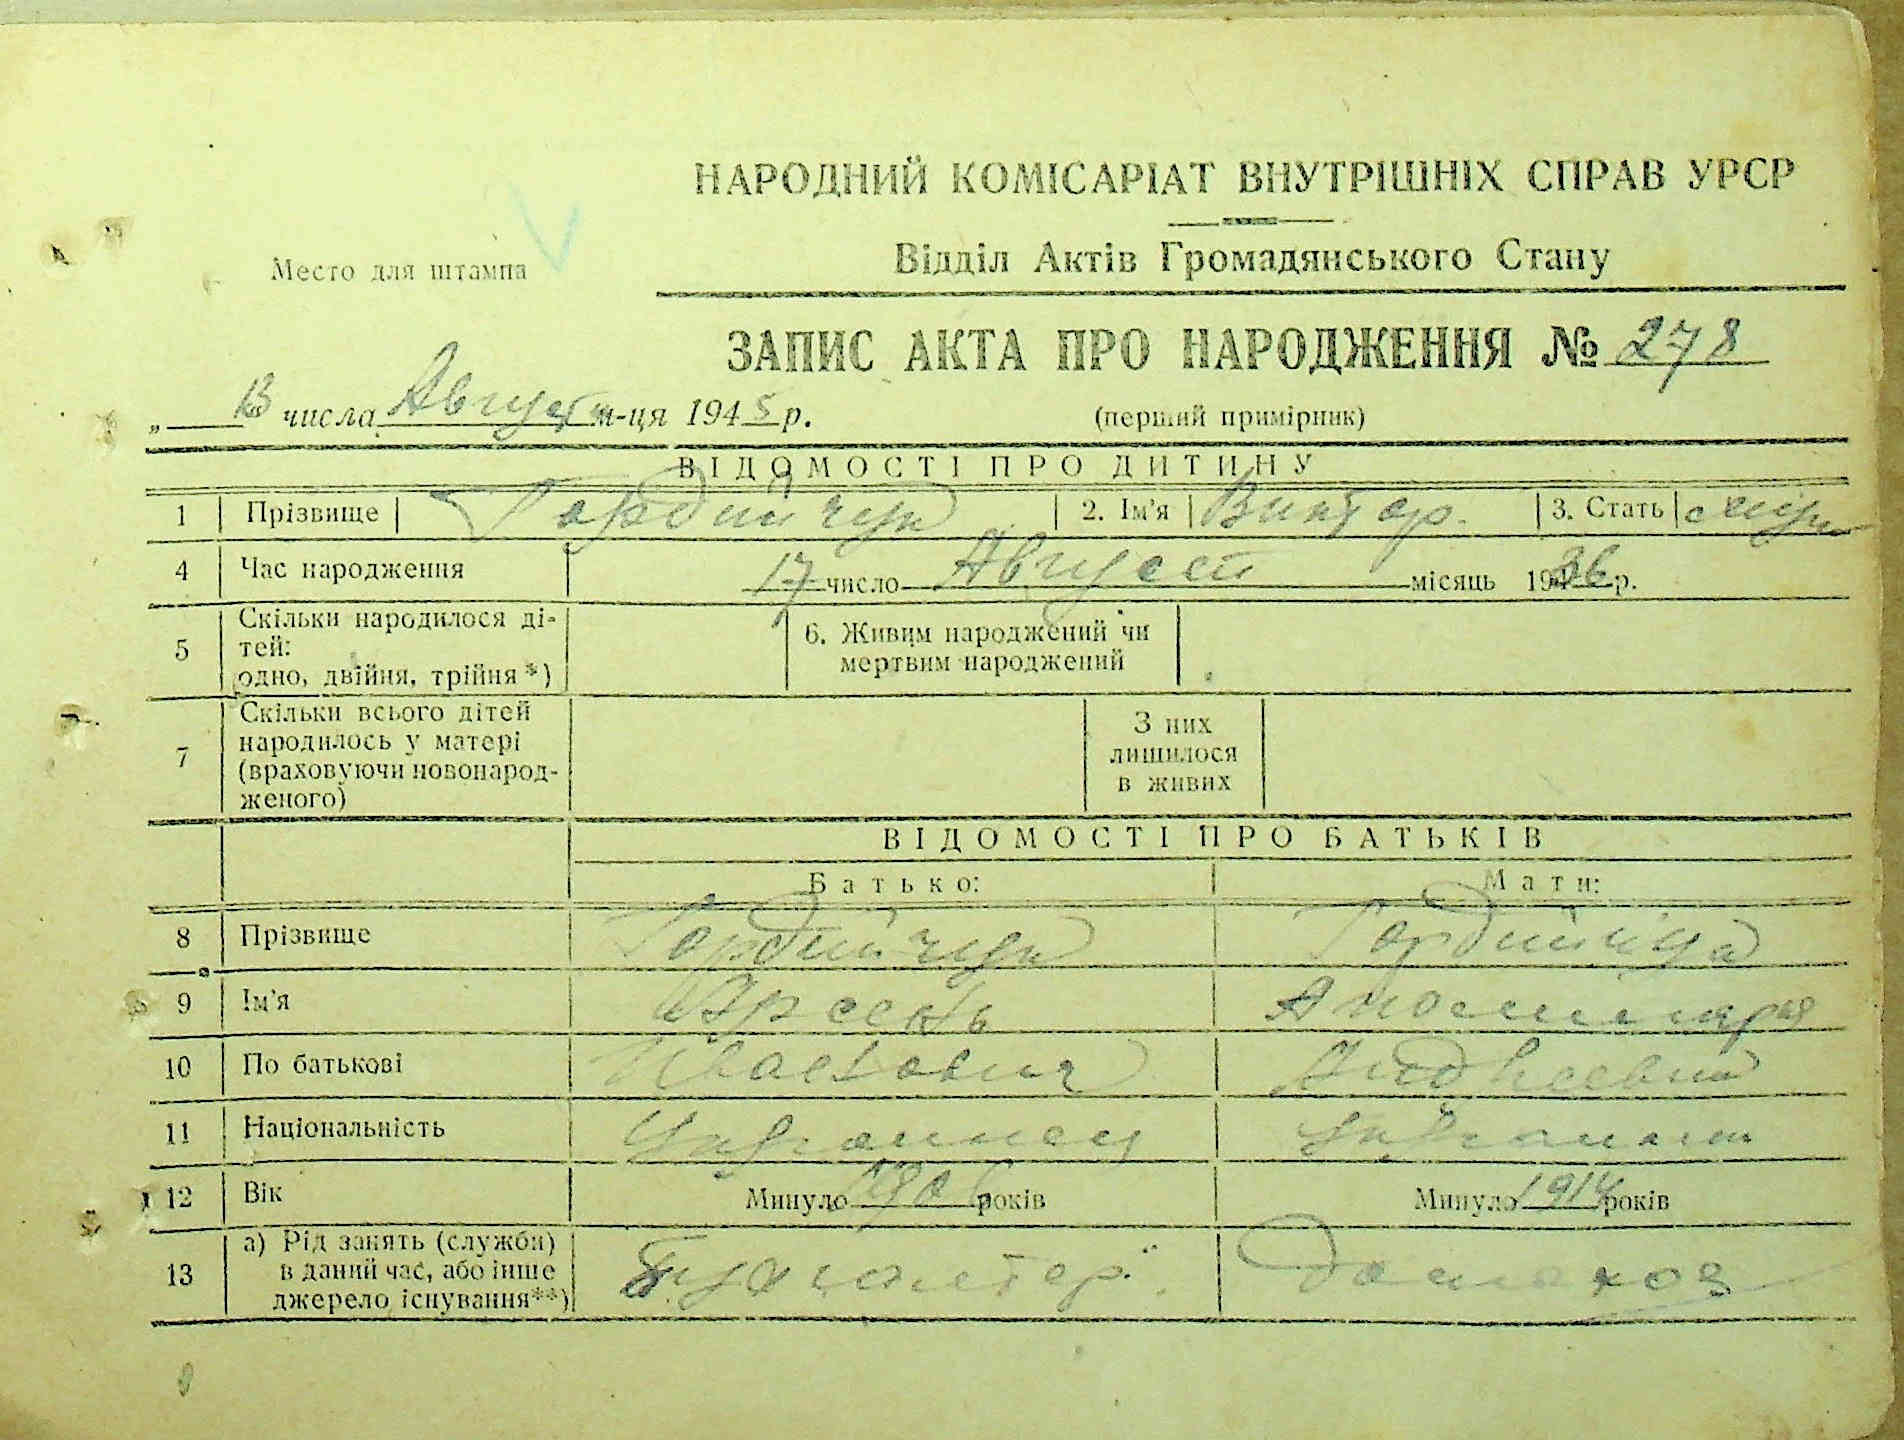 НАРОДНИЙ КОМІСАРІАТ ВНУТРІШНІХ СПРАВ УРСР
Место для штампа
Відділ Актів Громадянського Стану
ЗАПИС АКТА ПРО НАРОДЖЕННЯ № 278
„ 13 числа Август м-ця 1945 р.
(перший примірник)
ВІДОМОСТІ ПРО ДИТИНУ
1 Прізвище Гордийчук 2. Ім'я Виктор. 3. Стать
4 Час народження 17 число Август місяць 1936 р.
5 Скільки народилося ді-
тей:
одно, двійня, трійня *)
6. Живим народжений чи
мертвим народжений
7 Скільки всього дітей
народилось у матері
(враховуючи новонарод-
женого)
З них
лишилося
в живих
ВІДОМОСТІ ПРО БАТЬКІВ
Батько: Мати:
8 Прізвище Гордийчук
9 Ім'я Арсень
10 По батькові Андреевна
11 Національність Украинец
12 Вік Минуло років Минуло 1914 років
13 а) Рід занять (служби)
в даний час, або інше
джерело існування**)
Бухгалтер. Домахоз